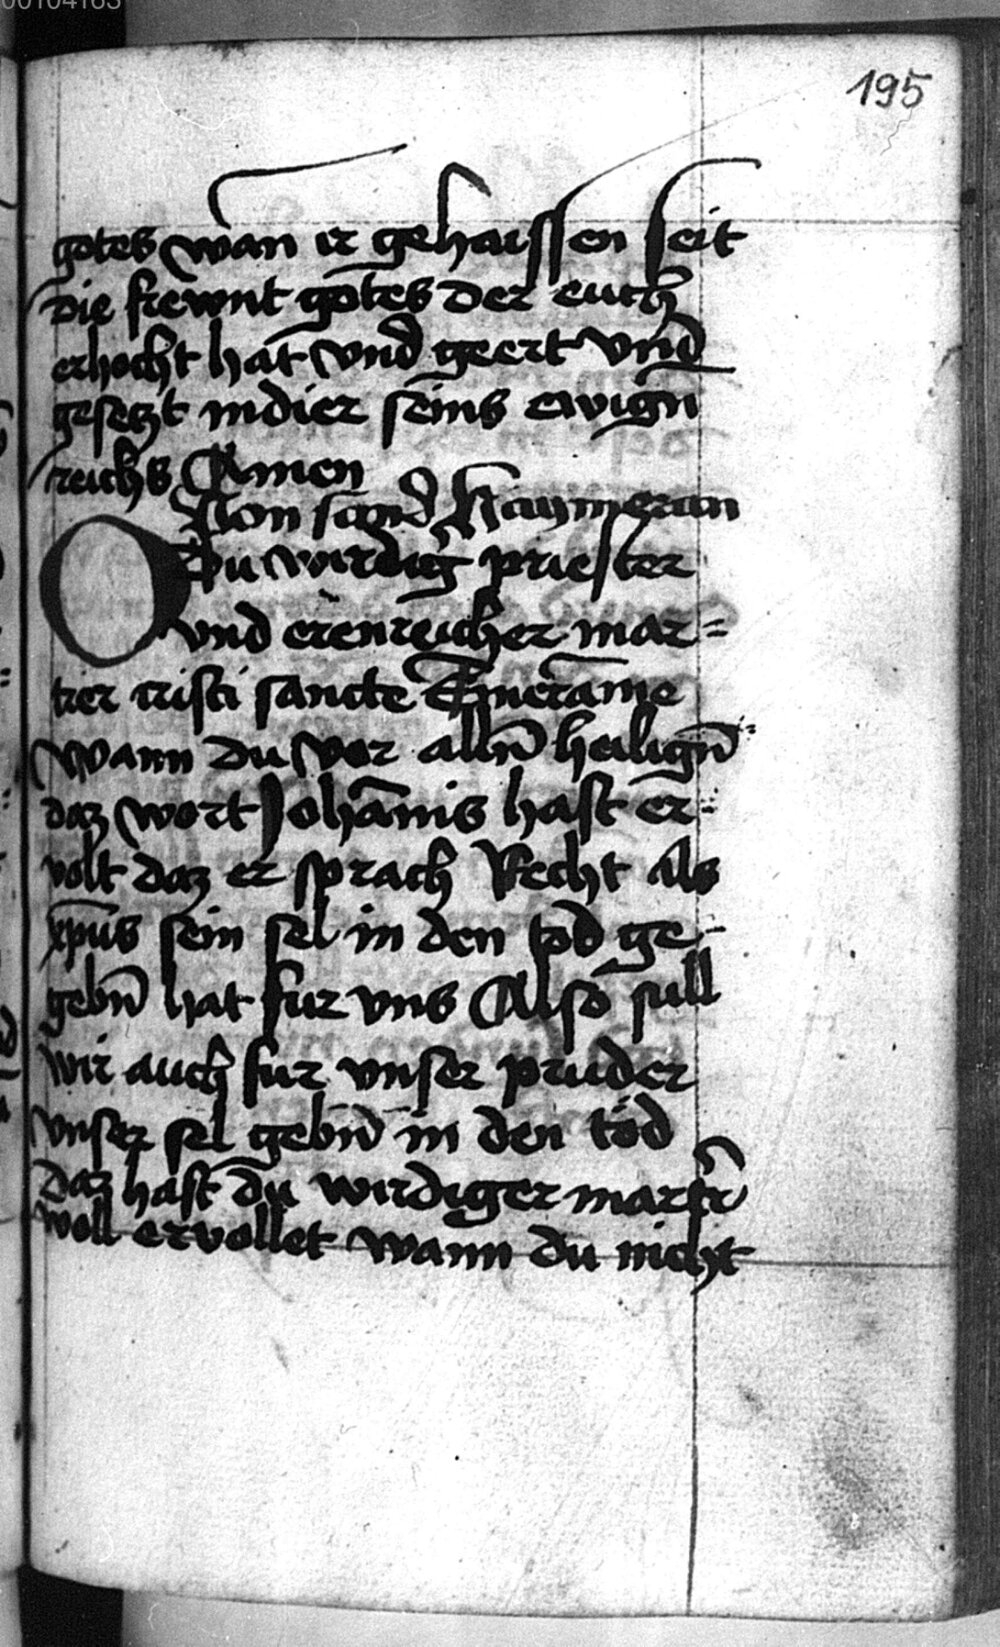 00104163
195
gotes wan ir gehaissen seit
die frewnt gotes der euch
erhocht hat vnd geert vnd
gesetzt in dier seins ewign
reichs Amen
Von sand Haymeran
O Du wirdig priester
vnd erenreicher mar=
trer cristi sancte Emerame
wann du vor alln̄ heilign̄
daz wort Johānis hast er=
volt daz er sprach Recht als
xp̄us sein sel in den tod ge=
gebn̄ hat fur vns Also sull
wir auch fur vnser pruder
vnser sel gebn̄ in den tod
Daz hast du wirdiger martr̄
woll ervollet wann du nicht